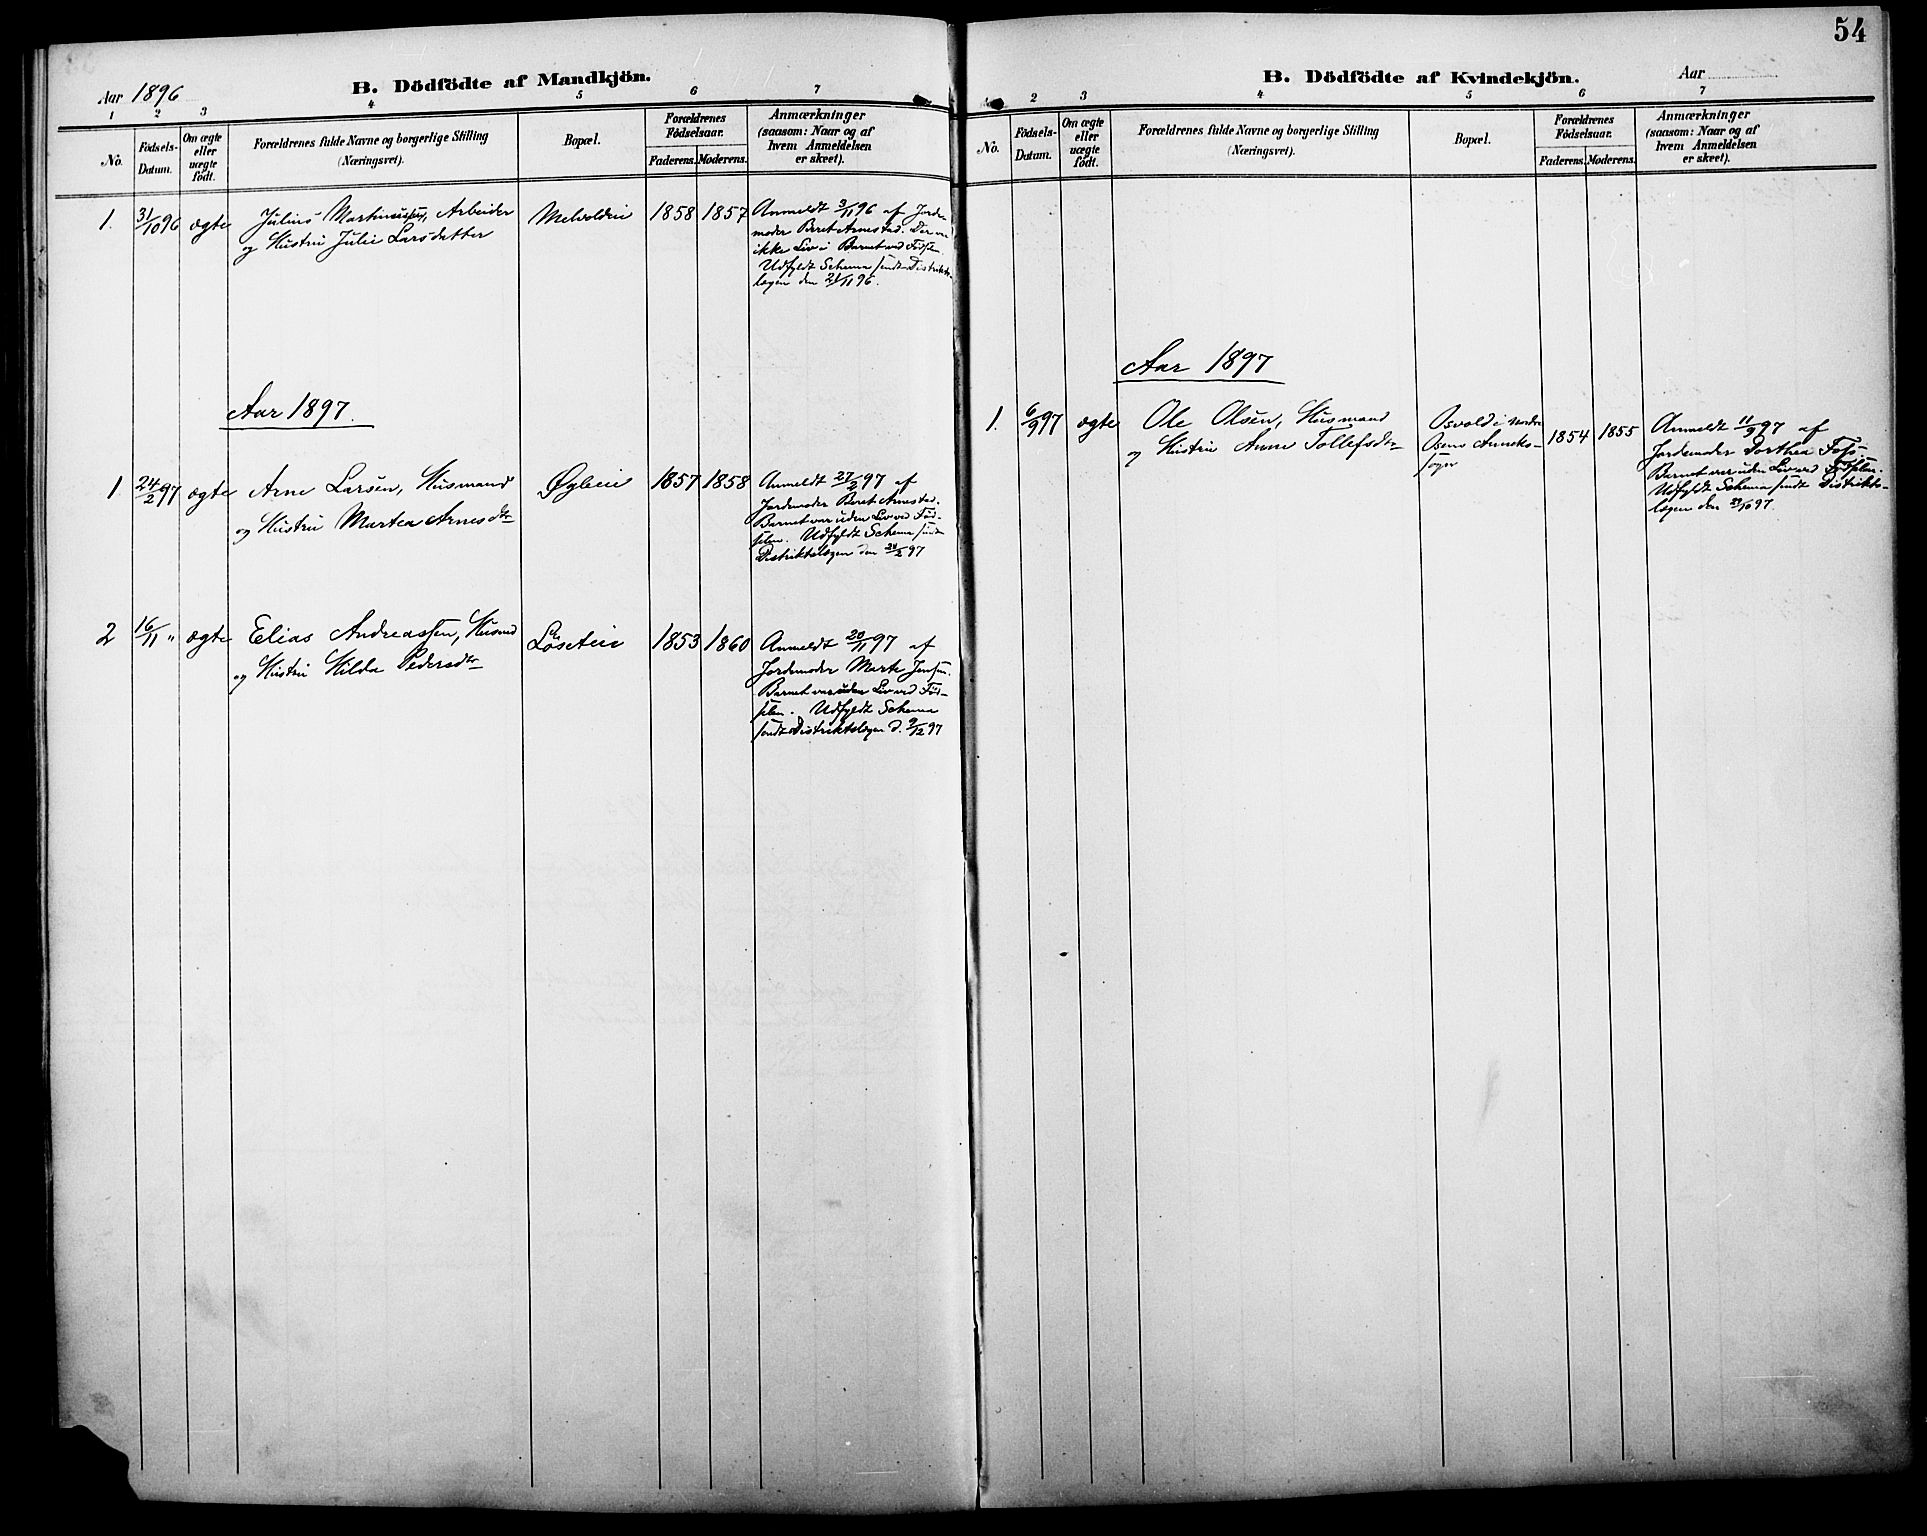 B. Dödfödte af Mandkjön.
Aar 1896
1 2 3 4 5 6 7
No.
Födsels-
Datum.
Om ægte
eller
uægte
födt.
Forældrenes fulde Navne og borgerlige Stilling
(Næringsvei).
Bopæl.
Forældrenes
Födselsaar.
Faderens. Moderens.
Anmærkninger
(saasom: Naar og af
hvem Anmeldelsen
er skeet).
1. 31/10 96 ægte
Julius Martinussen, Arbeider
og Hustru Julie Larsdatter
1858 1857
Anmeldt 3/11 96 af Jorde-
moder Beret Arnestad. Der var
ikke Liv i Barnet ved Fødslen.
Udfyldt Schema sendt Distrikts-
lægen den 21/11 96.
Aar 1897.
1 24/2 97 ægte
Arne Larsen, Husmand
og Hustru Martea Arnesdtr
1857 1858
Anmeldt 27/2 97 af
Jordemoder Beret Arnestad.
Barnet var uden Liv ved Fød-
slen. Udfyldt Schema sendt
Distriktslægen den 97
2 16/11 " ægte
Elias Andreassen, Husmd
og Hustru Hilda Pedersdtr
Løseteie
1853 1860
Anmeldt 20/11 97 af
Jordemoder Marte Jensen.
Barnet var uden Liv ved Fød-
slen. Udfyldt Schema
sendt Distriktslægen d. 9/12 97
54
B. Dödfödte af Kvindekjön.
Aar
2 3 4 5 6 7
No.
Födsels-
Datum.
Om ægte
eller
uægte
födt.
Forældrenes fulde Navne og borgerlige Stilling
(Næringsvei).
Bopæl.
Forældrenes
Födselsaar.
Faderens. Moderens.
Anmærkninger
(saasom: Naar og af
hvem Anmeldelsen
er skeet).
Aar 1897
1. 6/9 97 ægte
Ole Olsen, Husmand
og Hustru Anne Tollefsdtr
Osvold i nordre
Osens Anneks-
sogn
1854 1855
Anmeldt 11/9 97 af
Jordemoder Dorthea Foss.
Barnet var uden Liv ved Fødslen.
Udfyldt Schema sendt Distrikts-
lægen den 97.